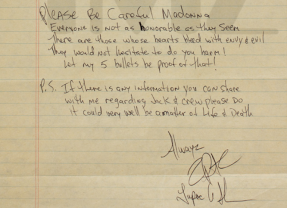 Please Be Careful Madonna
Everyone is not as honorable as they seem
There are those whose hearts bleed with envy & evil
They would not hesitate to do you harm!
Let my 5 bullets be proof of that!
P.S. If there is any information you can share
with me regarding Jack & crew please Do
it could very well be a matter of Life & Death
Always
Tupac